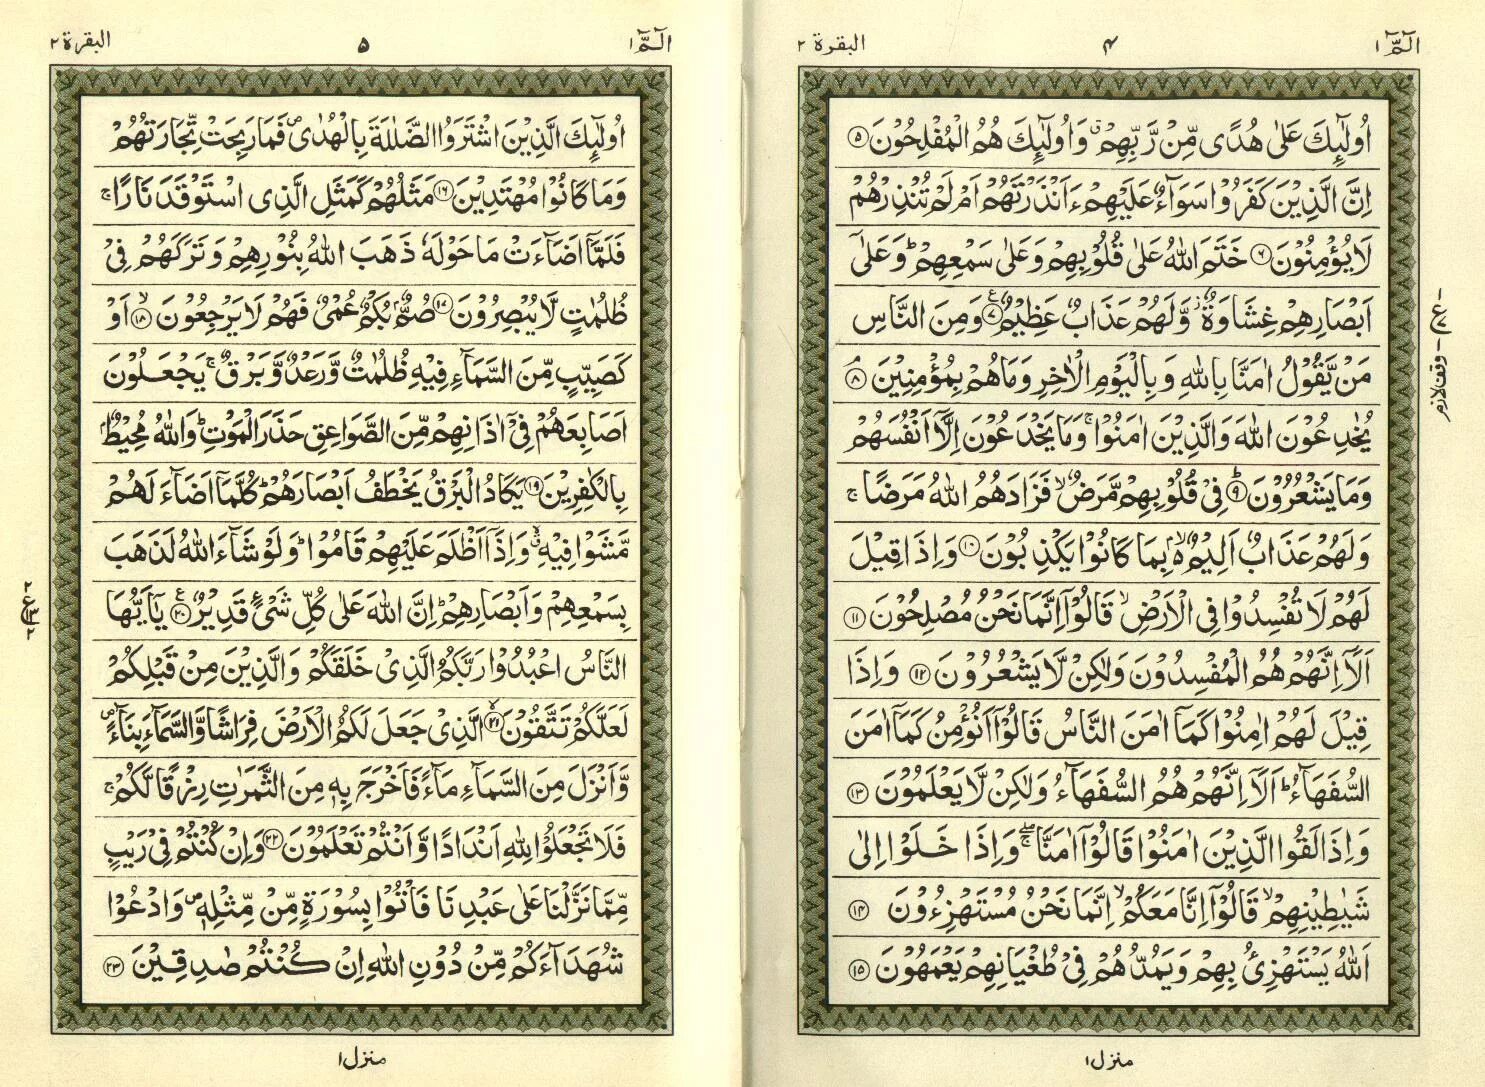 الٓمّٓ ١
۴
البقرة ٢
اُولٰٓئِكَ عَلٰى هُدًى مِّنْ رَّبِّهِمْ ۗ وَاُولٰٓئِكَ هُمُ الْمُفْلِحُوْنَ ۵
اِنَّ الَّذِيْنَ كَفَرُوْا سَوَآءٌ عَلَيْهِمْ ءَاَنْذَرْتَهُمْ اَمْ لَمْ تُنْذِرْهُمْ
لَا يُؤْمِنُوْنَ ۶ خَتَمَ اللّٰهُ عَلٰى قُلُوْبِهِمْ وَعَلٰى سَمْعِهِمْ ؕ وَعَلٰٓى
اَبْصَارِهِمْ غِشَاوَةٌ ز وَّلَهُمْ عَذَابٌ عَظِيْمٌ ۷ ع وَمِنَ النَّاسِ
مَنْ يَّقُوْلُ اٰمَنَّا بِاللّٰهِ وَبِالْيَوْمِ الْاٰخِرِ وَمَا هُمْ بِمُؤْمِنِيْنَ ۘ ۸
يُخٰدِعُوْنَ اللّٰهَ وَالَّذِيْنَ اٰمَنُوْا ۚ وَمَا يَخْدَعُوْنَ اِلَّاۤ اَنْفُسَهُمْ
وَمَا يَشْعُرُوْنَ ؕ ۹ فِيْ قُلُوْبِهِمْ مَّرَضٌ ۙ فَزَادَهُمُ اللّٰهُ مَرَضًا ۚ
وَلَهُمْ عَذَابٌ اَلِيْمٌۢ ۙ بِمَا كَانُوْا يَكْذِبُوْنَ ۱۰ وَاِذَا قِيْلَ
لَهُمْ لَا تُفْسِدُوْا فِى الْاَرْضِ ۙ قَالُوْۤا اِنَّمَا نَحْنُ مُصْلِحُوْنَ ۱۱
اَلَاۤ اِنَّهُمْ هُمُ الْمُفْسِدُوْنَ وَلٰكِنْ لَّا يَشْعُرُوْنَ ۱۲ وَاِذَا
قِيْلَ لَهُمْ اٰمِنُوْا كَمَاۤ اٰمَنَ النَّاسُ قَالُوْۤا اَنُؤْمِنُ كَمَاۤ اٰمَنَ
السُّفَهَآءُ ؕ اَلَاۤ اِنَّهُمْ هُمُ السُّفَهَآءُ وَلٰكِنْ لَّا يَعْلَمُوْنَ ۱۳
وَاِذَا لَقُوا الَّذِيْنَ اٰمَنُوْا قَالُوْۤا اٰمَنَّا ۖۚ وَاِذَا خَلَوْا اِلٰى
شَيٰطِيْنِهِمْ ۙ قَالُوْۤا اِنَّا مَعَكُمْ ۙ اِنَّمَا نَحْنُ مُسْتَهْزِءُوْنَ ۱۴
اَللّٰهُ يَسْتَهْزِئُ بِهِمْ وَيَمُدُّهُمْ فِيْ طُغْيَانِهِمْ يَعْمَهُوْنَ ۱۵
وقف لازم
منزل ١
الٓمّٓ ١
۵
البقرة ٢
اُولٰٓئِكَ الَّذِيْنَ اشْتَرَوُا الضَّلٰلَةَ بِالْهُدٰى ۪ فَمَا رَبِحَتْ تِّجَارَتُهُمْ
وَمَا كَانُوْا مُهْتَدِيْنَ ۱۶ مَثَلُهُمْ كَمَثَلِ الَّذِى اسْتَوْقَدَ نَارًا ۚ
فَلَمَّاۤ اَضَآءَتْ مَا حَوْلَهٗ ذَهَبَ اللّٰهُ بِنُوْرِهِمْ وَتَرَكَهُمْ فِيْ
ظُلُمٰتٍ لَّا يُبْصِرُوْنَ ۱۷ صُمٌّۢ بُكْمٌ عُمْيٌ فَهُمْ لَا يَرْجِعُوْنَ ۙ ۱۸ اَوْ
كَصَيِّبٍ مِّنَ السَّمَآءِ فِيْهِ ظُلُمٰتٌ وَّرَعْدٌ وَّبَرْقٌ ۚ يَجْعَلُوْنَ
اَصَابِعَهُمْ فِيْۤ اٰذَانِهِمْ مِّنَ الصَّوَاعِقِ حَذَرَ الْمَوْتِ ؕ وَاللّٰهُ مُحِيْطٌۢ
بِالْكٰفِرِيْنَ ۱۹ يَكَادُ الْبَرْقُ يَخْطَفُ اَبْصَارَهُمْ ؕ كُلَّمَاۤ اَضَآءَ لَهُمْ
مَّشَوْا فِيْهِ ۙ وَاِذَاۤ اَظْلَمَ عَلَيْهِمْ قَامُوْا ؕ وَلَوْ شَآءَ اللّٰهُ لَذَهَبَ
بِسَمْعِهِمْ وَاَبْصَارِهِمْ ؕ اِنَّ اللّٰهَ عَلٰى كُلِّ شَيْءٍ قَدِيْرٌ ۲۰ ع يٰۤاَيُّهَا
النَّاسُ اعْبُدُوْا رَبَّكُمُ الَّذِيْ خَلَقَكُمْ وَالَّذِيْنَ مِنْ قَبْلِكُمْ
لَعَلَّكُمْ تَتَّقُوْنَ ۙ ۲۱ الَّذِيْ جَعَلَ لَكُمُ الْاَرْضَ فِرَاشًا وَّالسَّمَآءَ بِنَآءً ۪
وَّاَنْزَلَ مِنَ السَّمَآءِ مَآءً فَاَخْرَجَ بِهٖ مِنَ الثَّمَرٰتِ رِزْقًا لَّكُمْ ۚ
فَلَا تَجْعَلُوْا لِلّٰهِ اَنْدَادًا وَّاَنْتُمْ تَعْلَمُوْنَ ۲۲ وَاِنْ كُنْتُمْ فِيْ رَيْبٍ
مِّمَّا نَزَّلْنَا عَلٰى عَبْدِنَا فَاْتُوْا بِسُوْرَةٍ مِّنْ مِّثْلِهٖ ۪ وَادْعُوْا
شُهَدَآءَكُمْ مِّنْ دُوْنِ اللّٰهِ اِنْ كُنْتُمْ صٰدِقِيْنَ ۲۳
منزل ١